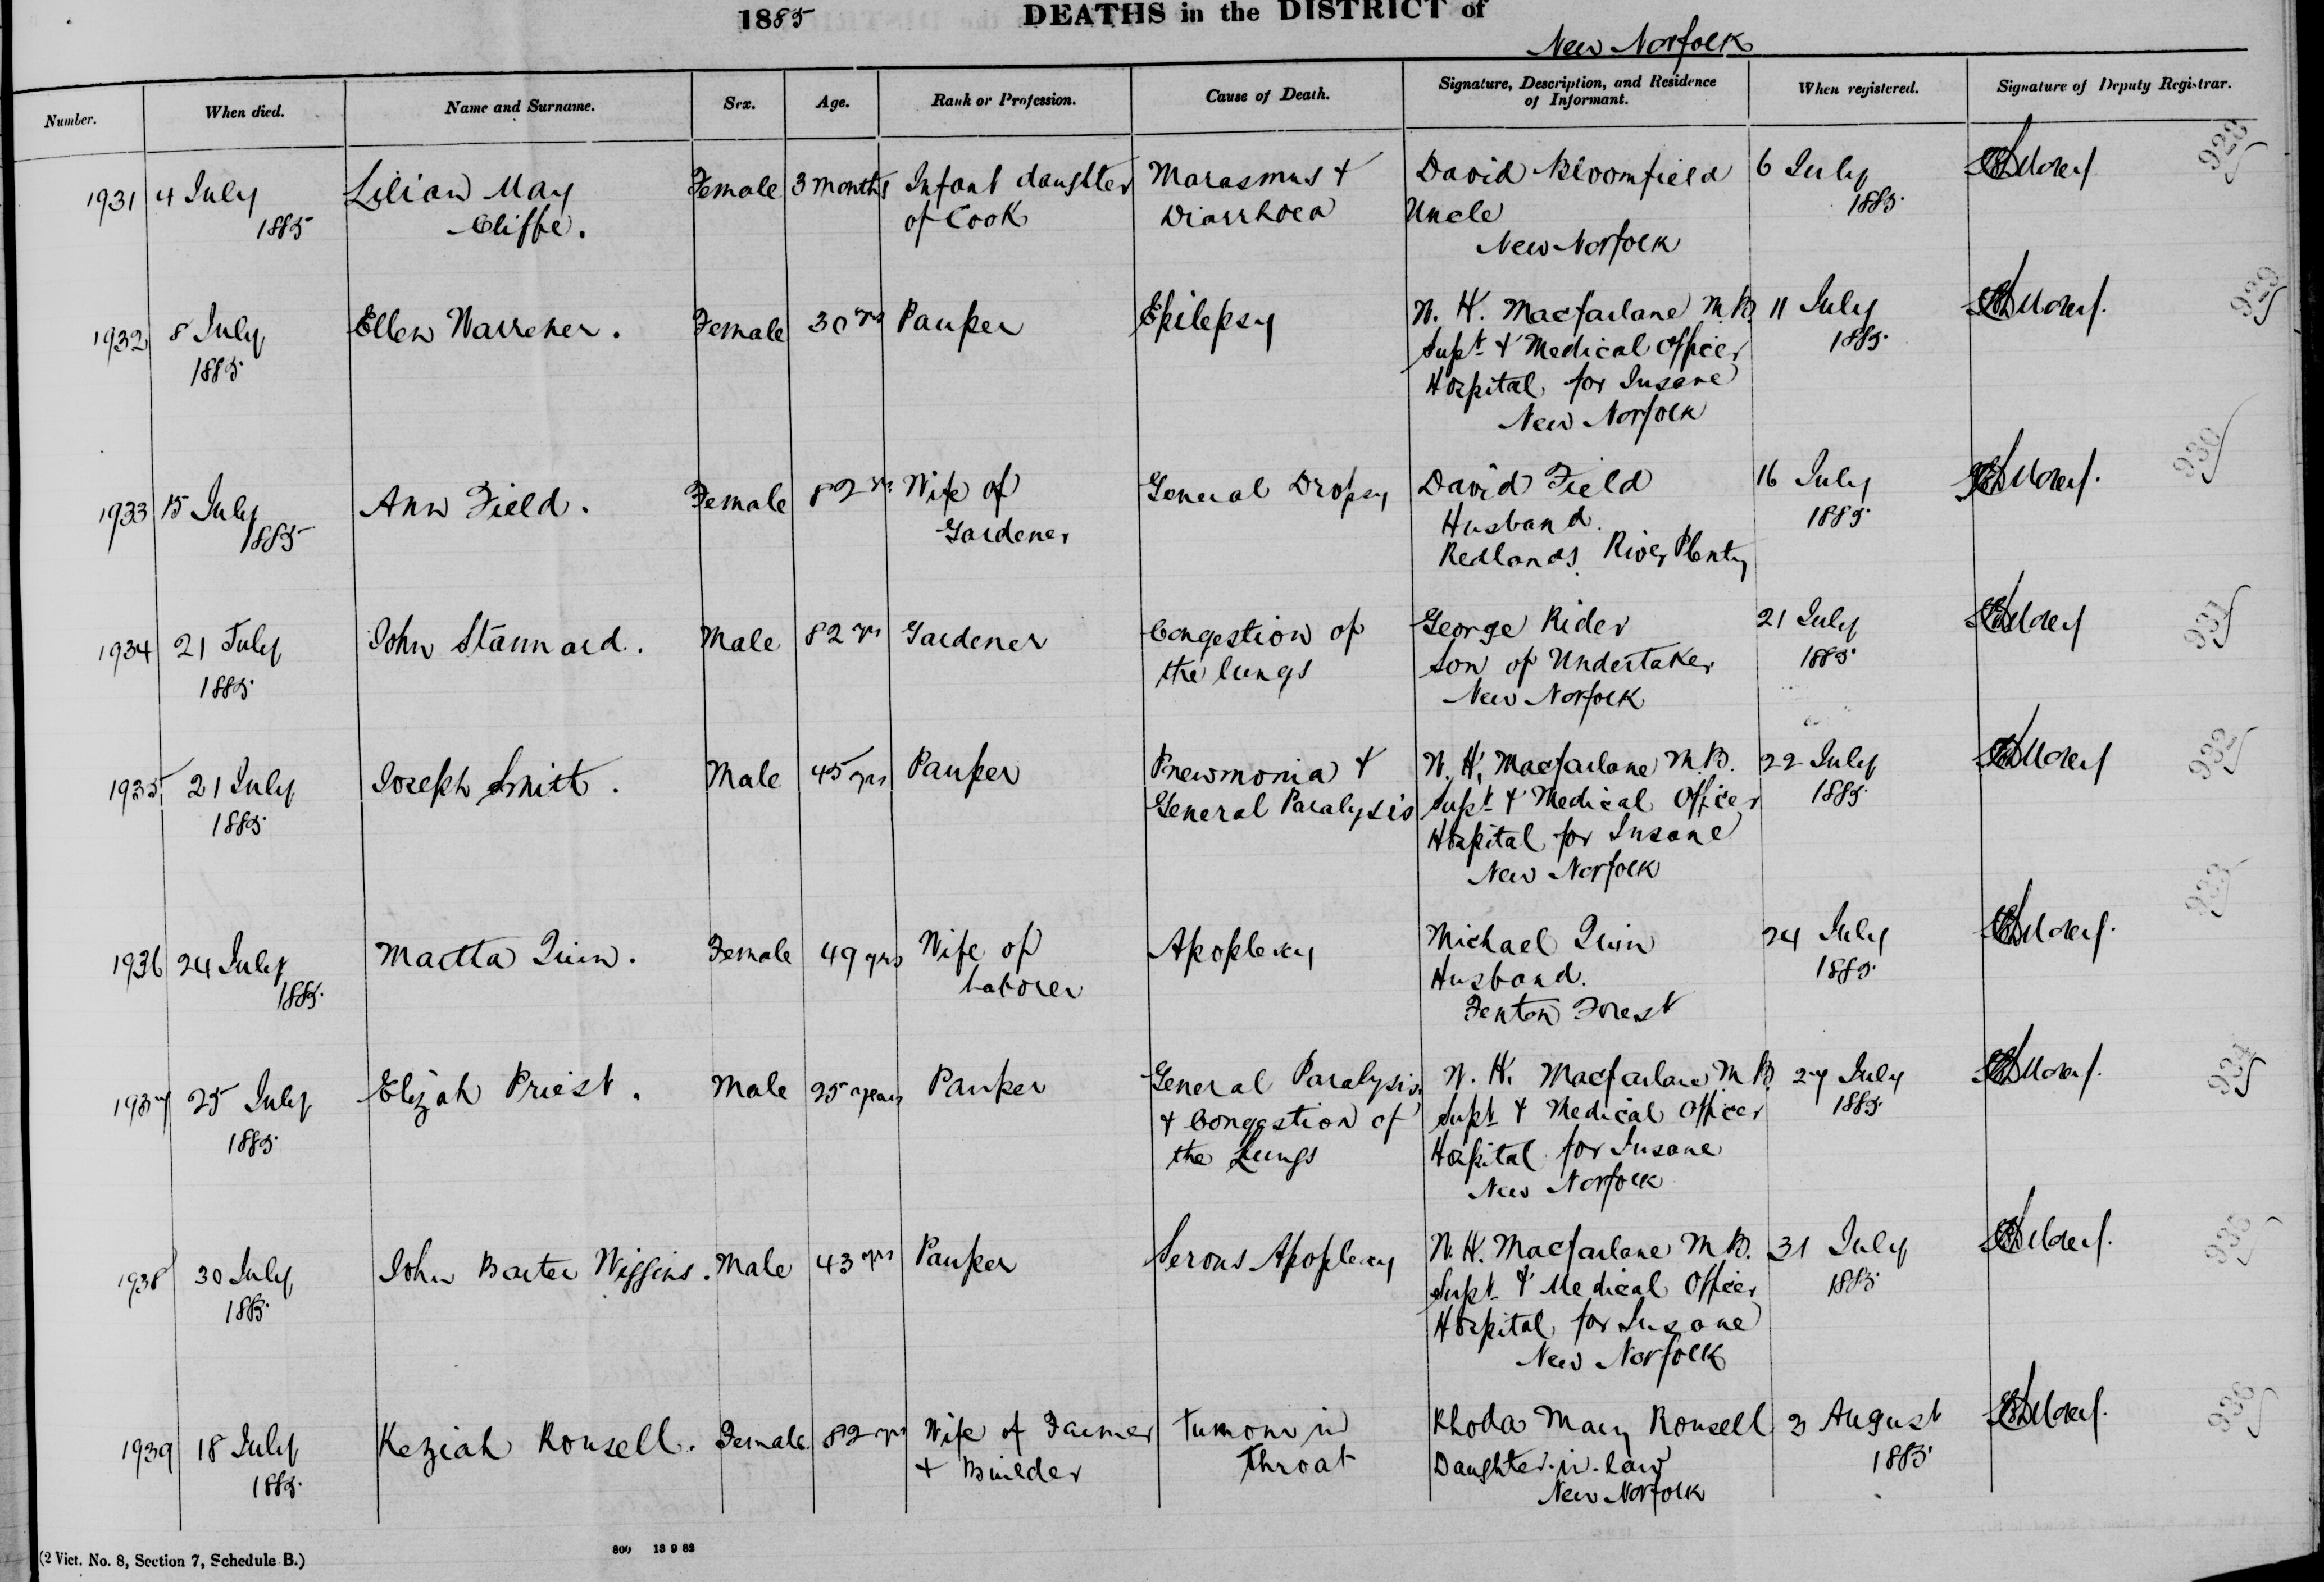 1885 DEATHS in the DISTRICT of
New Norfolk
Number. When died. Name and Surname. Sex. Age. Rank or Profession. Cause of Death. Signature, Description, and Residence of Informant. When registered. Signature of Deputy Registrar.
1931 4 July Lilian May Female 3 months Infant daughter Marasmus & David Bloomfield 6 July 928
1885 Cliffe. of Cook Diarrhoea Uncle 1885
New Norfolk
1932 8 July Ellen Warrener. Female 30 yrs Pauper Epilepsy W. H. Macfarlane M.B. 11 July 929
1885 Supt & Medical Officer 1885
Hospital for Insane
New Norfolk
1933 15 July Ann Field. Female 82 yrs Wife of General Dropsy David Field 16 July 930
1885 Gardener Husband. 1885
Redlands River Plenty
1934 21 July John Stannard. Male 82 yrs Gardener Congestion of George Rider 21 July 931
1885 the lungs Son of Undertaker 1885
New Norfolk
1935 21 July Joseph Smith. Male 45 yrs Pauper Pnewmonia & W. H. Macfarlane M.B. 22 July 932
1885 General Paralysis Supt & Medical Officer 1885
Hospital for Insane
New Norfolk
1936 24 July Martta Quin. Female 49 yrs Wife of Apoplexy Michael Quin 24 July 933
1885 Laborer Husband. 1885
Fenton Forest
1937 25 July Elizah Priest. Male 25 years Pauper General Paralysis W. H. Macfarlane M.B. 27 July 934
1885 & Congestion of Supt & Medical Officer 1885
the Lungs Hospital for Insane
New Norfolk
1938 30 July John Baxter Wiggins. Male 43 yrs Pauper Serous Apoplexy W. H. Macfarlane M.B. 31 July 935
1885 Supt & Medical Officer 1885
Hospital for Insane
New Norfolk
1939 18 July Keziah Rousell. Female 82 yrs Wife of Farmer Tumour in Rhoda Mary Rousell 3 August 936
1885 & Builder Throat Daughter-in-law 1885
New Norfolk
(2 Vict. No. 8, Section 7, Schedule B.) 800 13 9 82